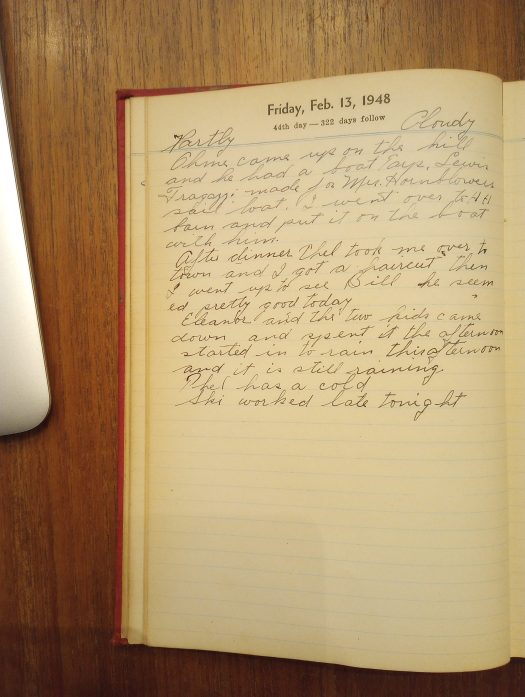 Friday, Feb. 13, 1948
44th day — 322 days follow
Partly Cloudy
came up on the hill
and he had a boat Lewis
made for Mrs. Hornblowers
sail boat. I went over to
barn and put it on the boat
with him.
After dinner Thel took me over to
town and I got a haircut then
I went up to see Bill he seem
ed pretty good today
Eleanor and the two kids came
down and spent it the afternoon
started in to rain this afternoon
and it is still raining.
Thel has a cold
Ski worked late tonight